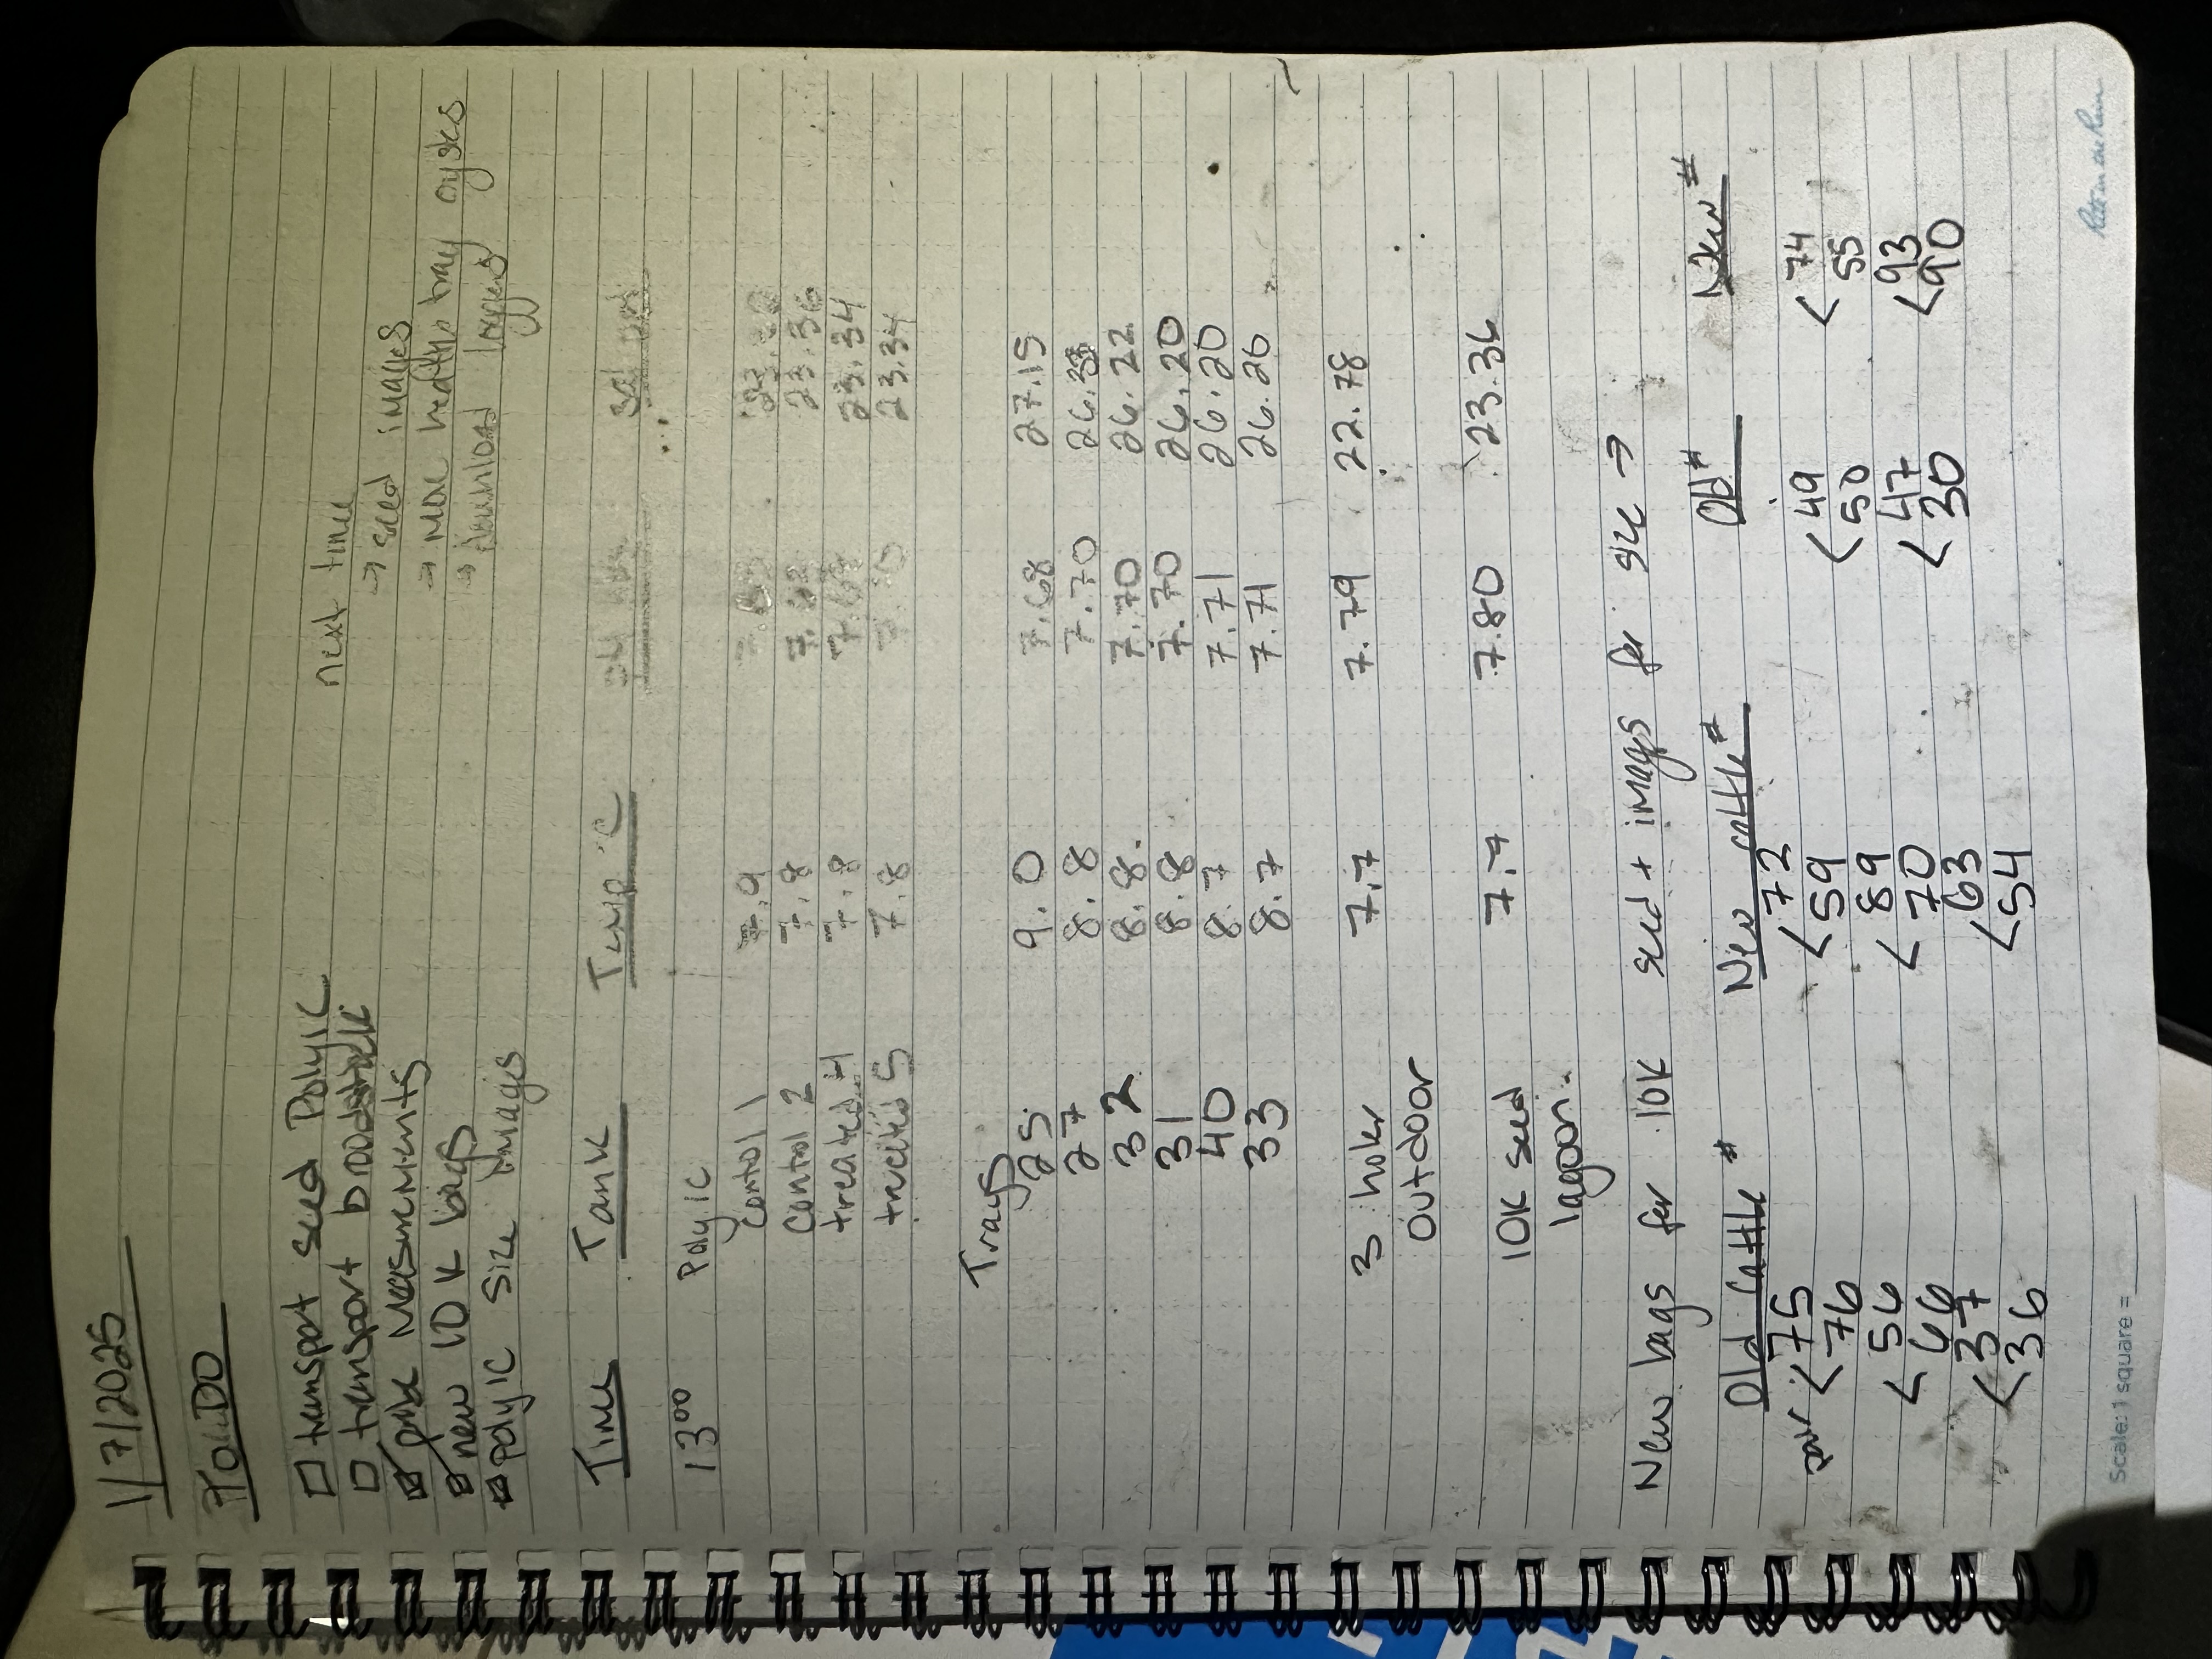 1/7/2025
TO DO
transport seed PolyIC
transport broodstock
probe measurements
new 10K bags
polyIC size images
next time
→ seed images
→ more health tray oysters
→ download loggers
Time Tank Temp °C pH sal
13⁰⁰ Poly IC
contol 1 7.9
Control 2 7.8 23.36
treated 4 7.8 23.34
treated 5 7.8 23.34
Trays
25 9.0 7.68 27.15
27 8.8 7.70
32 8.8 7.70 26.22
31 8.8 7.70 26.20
40 8.7 7.71 26.20
33 8.7 7.71 26.20
3 holer 7.7 7.79 22.78
outdoor
10K seed 7.7 7.80 23.36
lagoon
New bags for 10K seed + images for size →
Old cattle # New cattle # Old # New #
pair < 75 < 72 < 49 < 74
76 59 50 55
< 56 < 89 < 47 < 93
66 70 30 90
< 37 < 63
36 54
Scale: 1 square = ______
Rite in the Rain